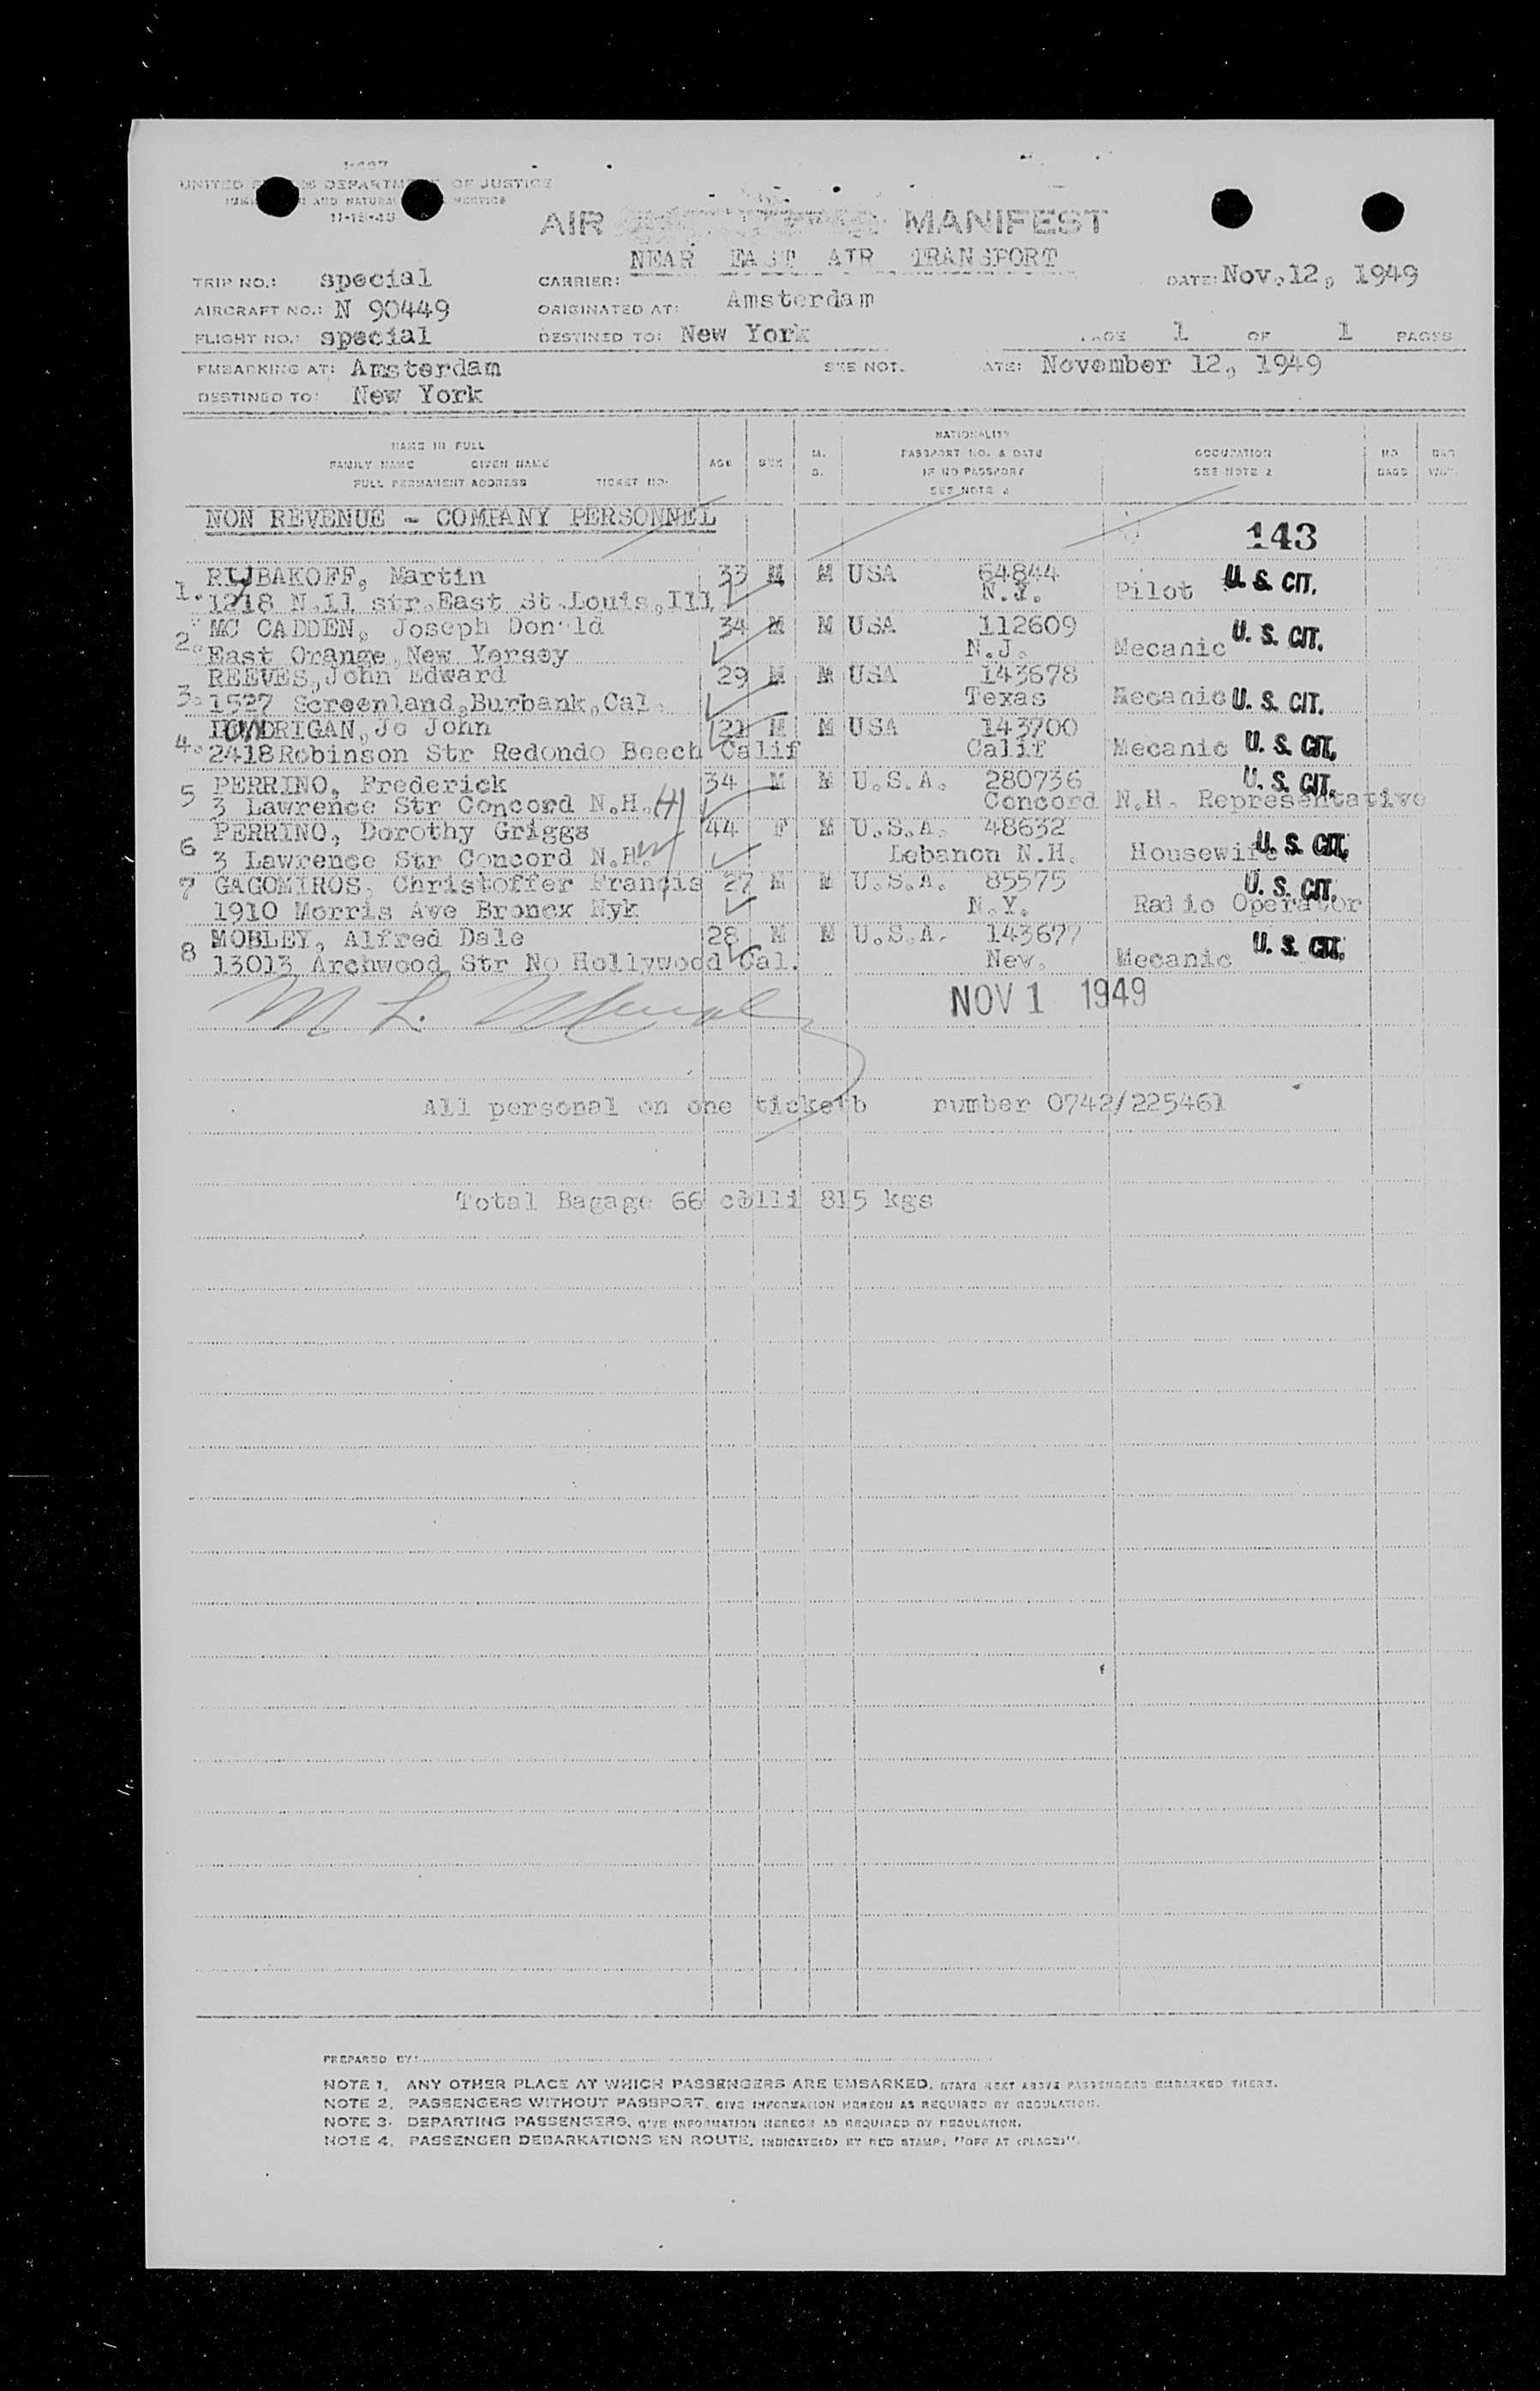 I-487
UNITED STATES DEPARTMENT OF JUSTICE
IMMIGRATION AND NATURALIZATION SERVICE
11-15-45
AIR MANIFEST
TRIP NO.: special
CARRIER: NEAR EAST AIR TRANSPORT
DATE: Nov.12, 1949
AIRCRAFT NO.: N 90449
ORIGINATED AT: Amsterdam
FLIGHT NO.: special
DESTINED TO: New York
PAGE 1 OF 1 PAGES
EMBARKING AT: Amsterdam
SEE NOT. ATE: November 12, 1949
DESTINED TO: New York
NAME IN FULL
FAMILY NAME GIVEN NAME
FULL PERMANENT ADDRESS TICKET NO.
AGE SEX M. S.
NATIONALITY
PASSPORT NO. & DATE
IF NO PASSPORT
SEE NOTE 2
OCCUPATION
SEE NOTE 2
NO BAGS
BAG WGT.
NON REVENUE - COMPANY PERSONNEL
143
1. RYBAKOFF, Martin 33 M M USA 64844
1218 N.11 str.East St.Louis,Ill N.Y. Pilot U. S. CIT.
2. MC CADDEN, Joseph Don ld 34 M M USA 112609
East Orange,New Yersey N.J. Mecanic U. S. CIT.
3. REEVES,John Edward 29 M M USA 143678
1527 Screenland,Burbank,Cal. Texas Mecanic U. S. CIT.
4. DRIGAN,Jo John 21 M M USA 143700
2418Robinson Str Redondo Beech Calif Calif Mecanic U. S. CIT.
5 PERRINO, Frederick 34 M M U.S.A. 280736 U. S. CIT.
3 Lawrence Str Concord N.H. Concord N.H. Representative
6 PERRINO, Dorothy Griggs 44 F M U.S.A. 48632
3 Lawrence Str Concord N.H. Lebanon N.H. Housewife U. S. CIT.
7 GACOMIROS, Christoffer Francis 27 M M U.S.A. 85575 U. S. CIT.
1910 Morris Ave Broncx Nyk N.Y. Radio Operator
8 MOBLEY, Alfred Dale 28 M M U.S.A. 143677
13013 Archwood Str No Hollywood Cal. Nev. Mecanic U. S. CIT.
M L.
NOV 1 1949
All personal on one ticketb number 0742/225461
Total Bagage 66 colli 815 kgs
PREPARED BY:
NOTE 1. ANY OTHER PLACE AT WHICH PASSENGERS ARE EMBARKED, STATE NEXT ABOVE PASSENGERS EMBARKED THERE.
NOTE 2. PASSENGERS WITHOUT PASSPORT, GIVE INFORMATION HEREON AS REQUIRED BY REGULATION.
NOTE 3. DEPARTING PASSENGERS, GIVE INFORMATION HEREON AS REQUIRED BY REGULATION.
NOTE 4. PASSENGER DEBARKATIONS EN ROUTE, INDICATE(D) BY RED STAMP, "OFF AT (PLACE)".